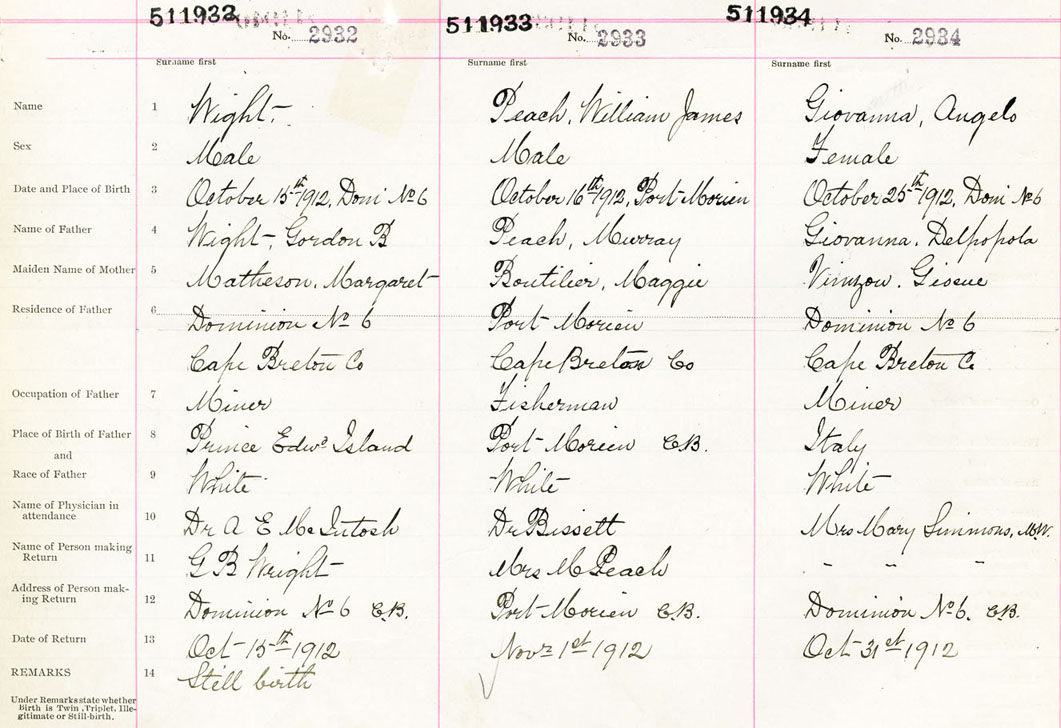 511932 511933 511934
No. 2932 No. 2933 No. 2934
Surname first Surname first Surname first
Name 1 Wight, Peach, William James Giovanna, Angelo
Sex 2 Male Male Female
Date and Place of Birth 3 October 15th 1912, Dom No 6 October 16th 1912, Port Morien October 25th 1912, Dom No 6
Name of Father 4 Wight, Gordon B Peach, Murray Giovanna, Delpopola
Maiden Name of Mother 5 Matheson, Margaret Boutilier, Maggie Giosue
Residence of Father 6 Dominion No 6 Port Morien Dominion No 6
Cape Breton Co Cape Breton Co Cape Breton Co
Occupation of Father 7 Miner Fisherman Miner
Place of Birth of Father 8 Prince Edwd Island Port Morien C.B. Italy
and
Race of Father 9 White White White
Name of Physician in
attendance 10 Dr A E McIntosh Dr Bissett Mrs Mary Simmons, M.W.
Name of Person making
Return 11 G B Wright Mrs M Peach " " "
Address of Person mak-
ing Return 12 Dominion No 6 C.B. Port Morien C.B. Dominion No 6. C.B.
Date of Return 13 Oct 15th 1912 Novr 1st 1912 Oct 31st 1912
REMARKS 14 Still birth
Under Remarks state whether
Birth is Twin, Triplet, Ille-
gitimate or Still-birth.